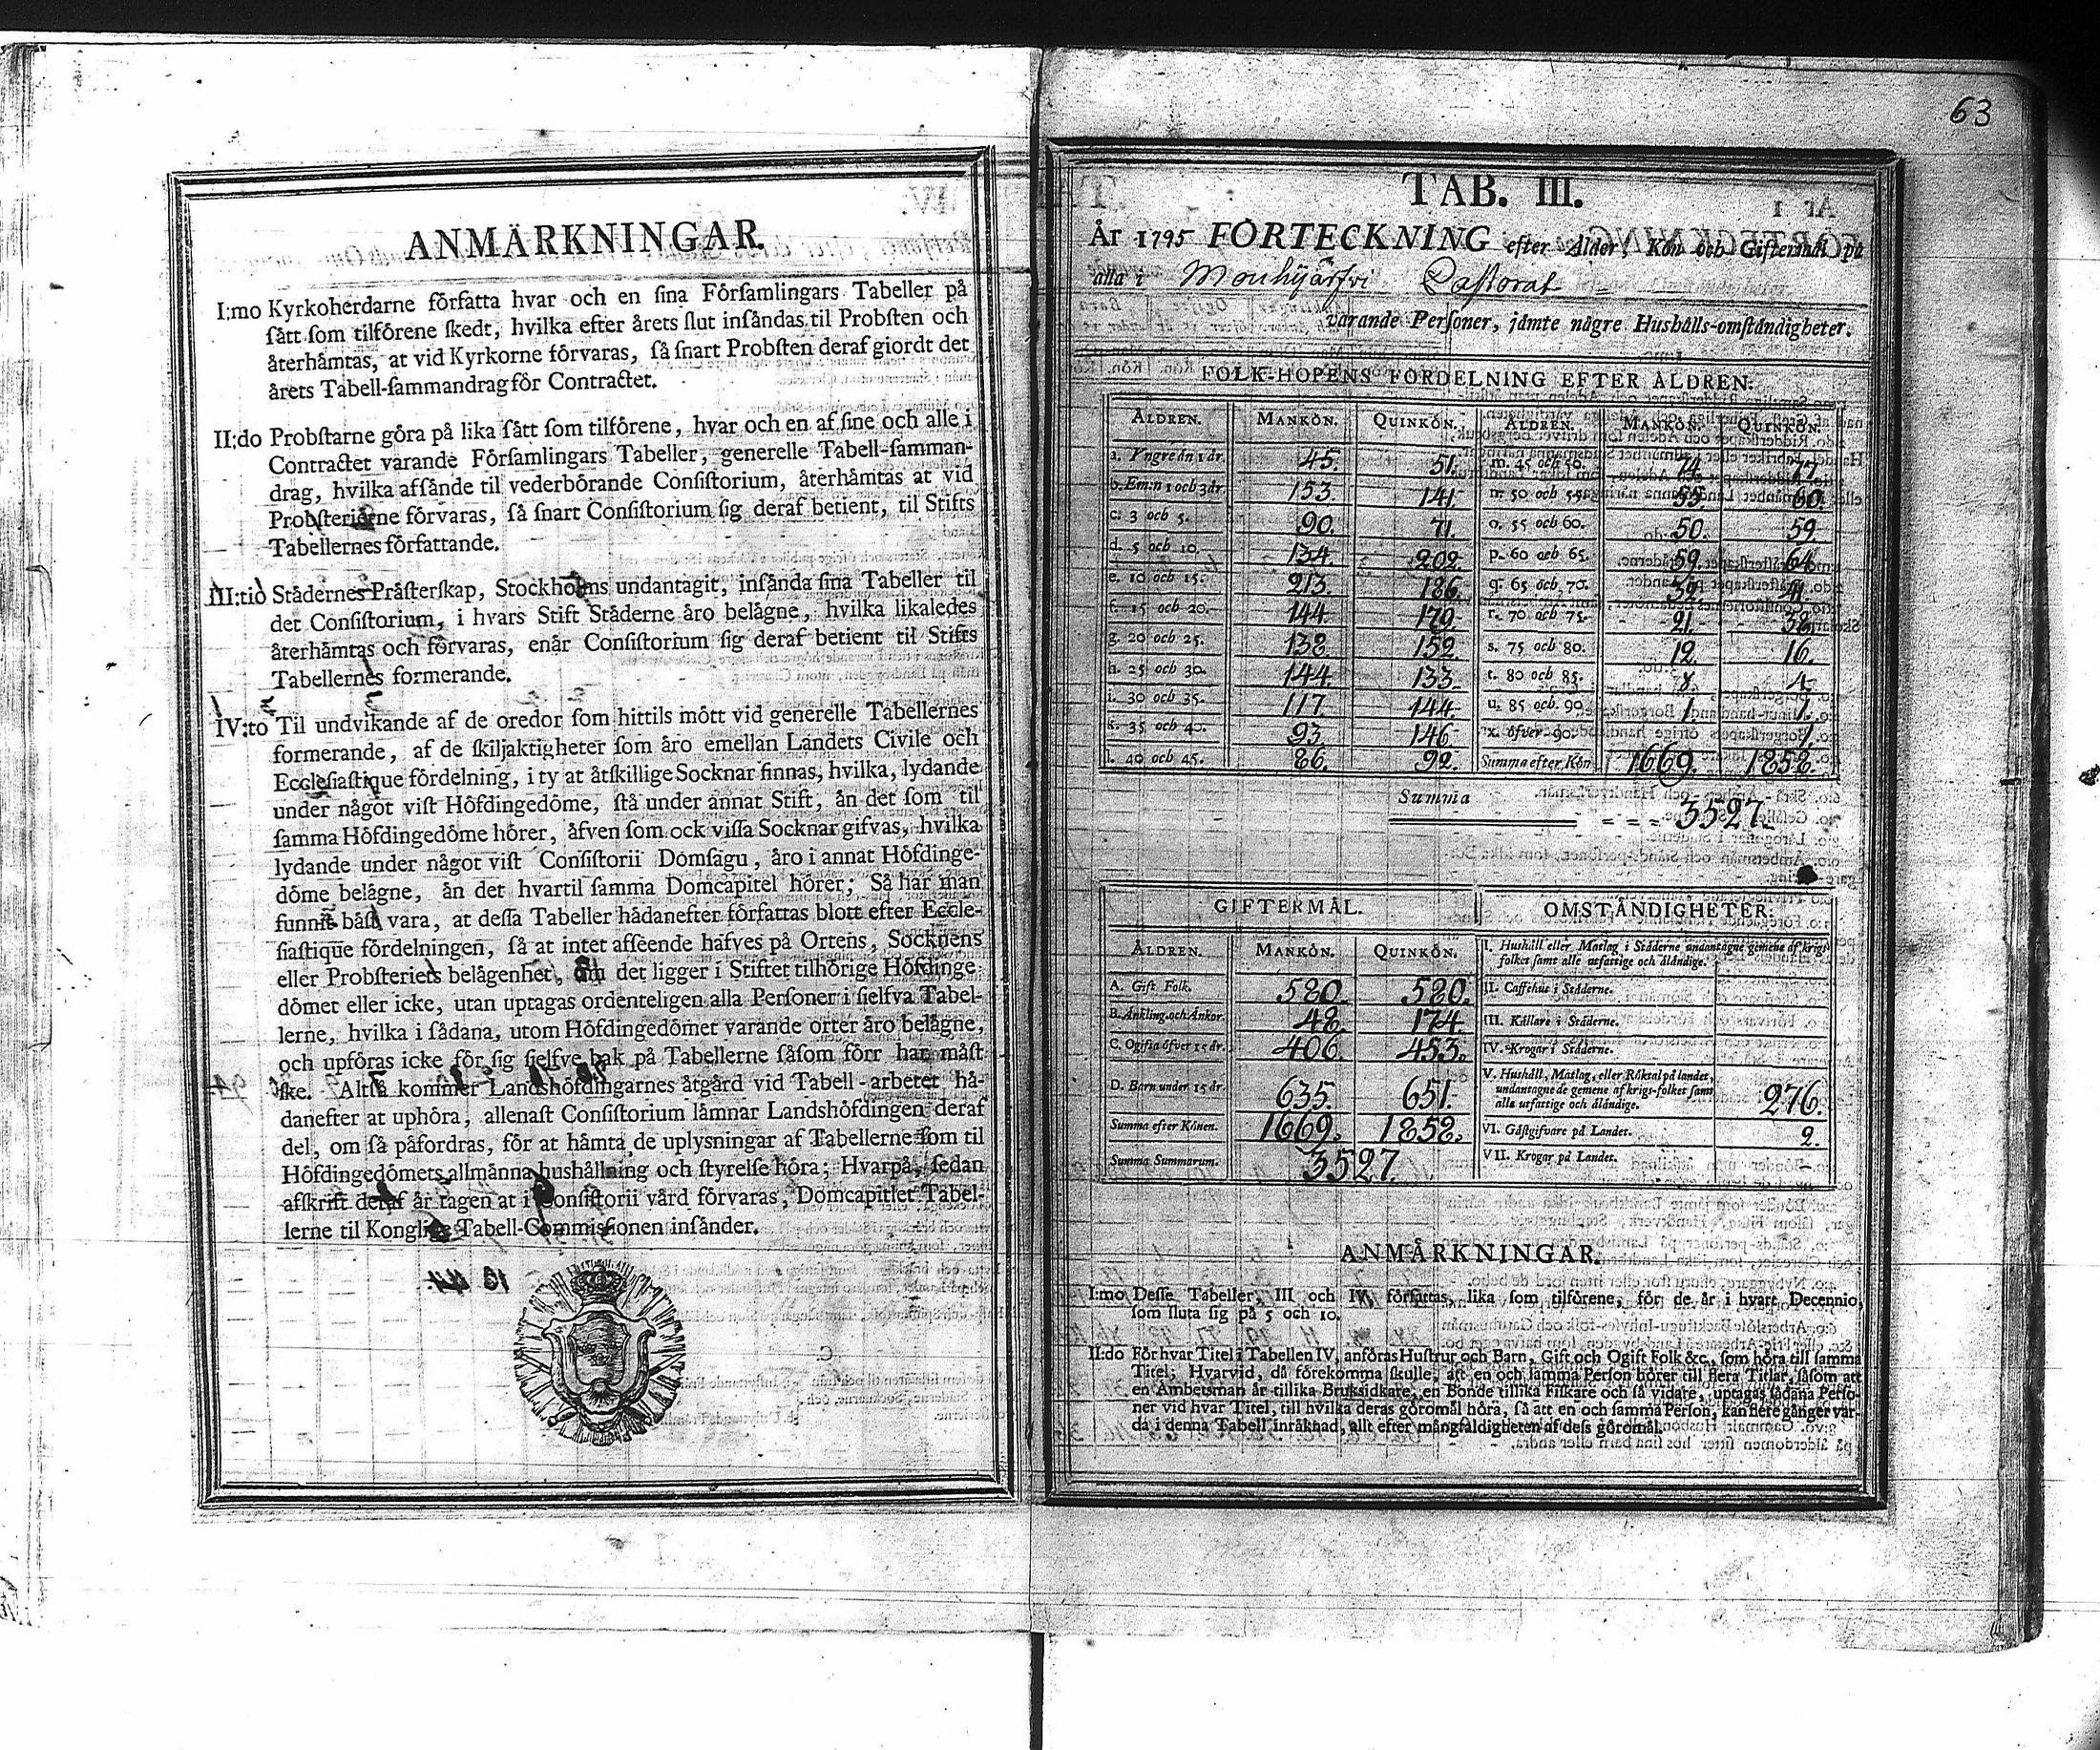 ANMÄRKNINGAR.
I:mo Kyrkoherdarne författa hvar och en sina Församlingars Tabeller på
sätt som tilförene skedt, hvilka efter årets slut insändas til Probsten och
återhämtas, at vid Kyrkorne förvaras, så snart Probsten deraf giordt det
årets Tabell-sammandrag för Contractet.
II:do Probstarne göra på lika sätt som tilförene, hvar och en af sine och alle i
Contractet varande Församlingars Tabeller, generelle Tabell-samman-
drag, hvilka afsände til vederbörande Consistorium, återhämtas at vid
Probsterierne förvaras, så snart Consistorium sig deraf betient, til Stifts
Tabellernes författande.
III:tio Städernes Prästerskap, Stockholms undantagit, insända sina Tabeller til
det Consistorium, i hvars Stift Städerne äro belägne, hvilka likaledes
återhämtas och förvaras, enär Consistorium sig deraf betient til Stifts
Tabellernes formerande.
IV:to Til undvikande af de oredor som hittils mött vid generelle Tabellernes
formerande, af de skiljaktigheter som äro emellan Landets Civile och
Ecclesiastique fördelning, i ty at åtskillige Socknar finnas, hvilka, lydande
under något vist Höfdingedöme, stå under annat Stift, än det som til
samma Höfdingedöme hörer, äfven som ock vissa Socknar gifvas, hvilka
lydande under något vist Consistorii Domsagu, äro i annat Höfdinge-
döme belägne, än det hvartil samma Domcapitel hörer; Så har man
funnit bäst vara, at dessa Tabeller hädanefter författas blott efter Eccle-
siastique fördelningen, så at intet afseende häfves på Ortens, Socknens
eller Probsteriets belägenhet, om det ligger i Stiftet tilhörige Höfdinge-
dömet eller icke, utan uptagas ordenteligen alla Personer i sielfva Tabel-
lerne, hvilka i sådana, utom Höfdingedömet varande orter äro belägne,
och upföras icke för sig sielfve bak på Tabellerne såsom förr har måst
ske. Altså kommer Landshöfdingarnes åtgärd vid Tabell-arbetet hä-
danefter at uphöra, allenast Consistorium lämnar Landshöfdingen deraf
del, om så påfordras, för at hämta de uplysningar af Tabellerne som til
Höfdingedömets allmänna hushållning och styrelse höra; Hvarpå, sedan
afskrift deraf är tagen at i Consistorii vård förvaras, Domcapitlet Tabel-
lerne til Kongliga Tabell-Commissionen insänder.
63
TAB. III.
År 1795 FÖRTECKNING efter Ålder, Kön och Giftermål på
alla i Mouhijärfvi Pastorat
varande Personer, jämte någre Hushålls-omständigheter.
FOLK-HOPENS FÖRDELNING EFTER ÅLDREN.
ÅLDREN. MANKÖN. QUINKÖN. ÅLDREN. MANKÖN. QUINKÖN.
a. Yngre än 1 år. 45. 51. m. 45 och 50. 74. 77.
b. Em:n 1 och 3 år. 153. 141. n. 50 och 55. 55. 60.
c. 3 och 5. 90. 71. o. 55 och 60. 50. 59.
d. 5 och 10. 134. 202. p. 60 och 65. 59. 64.
e. 10 och 15. 213. 186. q. 65 och 70. 32. 41.
f. 15 och 20. 144. 179. r. 70 och 75. 21. 38.
g. 20 och 25. 138. 152. s. 75 och 80. 12. 16.
h. 25 och 30. 144. 133. t. 80 och 85. 8. 4.
i. 30 och 35. 117. 144. u. 85 och 90. 1. 1.
k. 35 och 40. 93. 146. x. öfver 90. 1.
l. 40 och 45. 86. 92. Summa efter Kön 1669. 1858.
Summa 3527.
GIFTERMÅL. OMSTÄNDIGHETER.
ÅLDREN. MANKÖN. QUINKÖN. I. Hushåll eller Matlag i Städerne undantagne gemene af krigs-
folket samt alle utfattige och åländige.
A. Gift Folk. 580. 580. II. Caffehus i Städerne.
B. Änkling. och Änkor. 48. 174. III. Källare i Städerne.
C. Ogifta öfver 15 år. 406. 453. IV. Krogar i Städerne.
D. Barn under 15 år. 635. 651. V. Hushåll, Matlag, eller Röktal på landet,
undantagne de gemene af krigs-folket samt
alla utfattige och åländige. 276.
Summa efter Könen. 1669. 1858. VI. Gästgifvare på Landet. 2.
Summa Summarum. 3527. VII. Krogar på Landet.
ANMÄRKNINGAR.
I:mo Desse Tabeller, III och IV, författas, lika som tilförene, för de år i hvart Decennio,
som sluta sig på 5 och 10.
II:do För hvar Titel i Tabellen IV, anföras Hustrur och Barn, Gift och Ogift Folk &c., som höra till samma
Titel; Hvarvid, då förekomma skulle, att en och samma Person hörer till flera Titlar, såsom att
en Ämbetsman är tillika Bruksidkare, en Bonde tillika Fiskare och så vidare, uptagas sådana Perso-
ner vid hvar Titel, till hvilka deras göromål höra, så att en och samma Person, kan flere gånger var-
da i denna Tabell inräknad, allt efter mångfaldigheten af dess göromål.